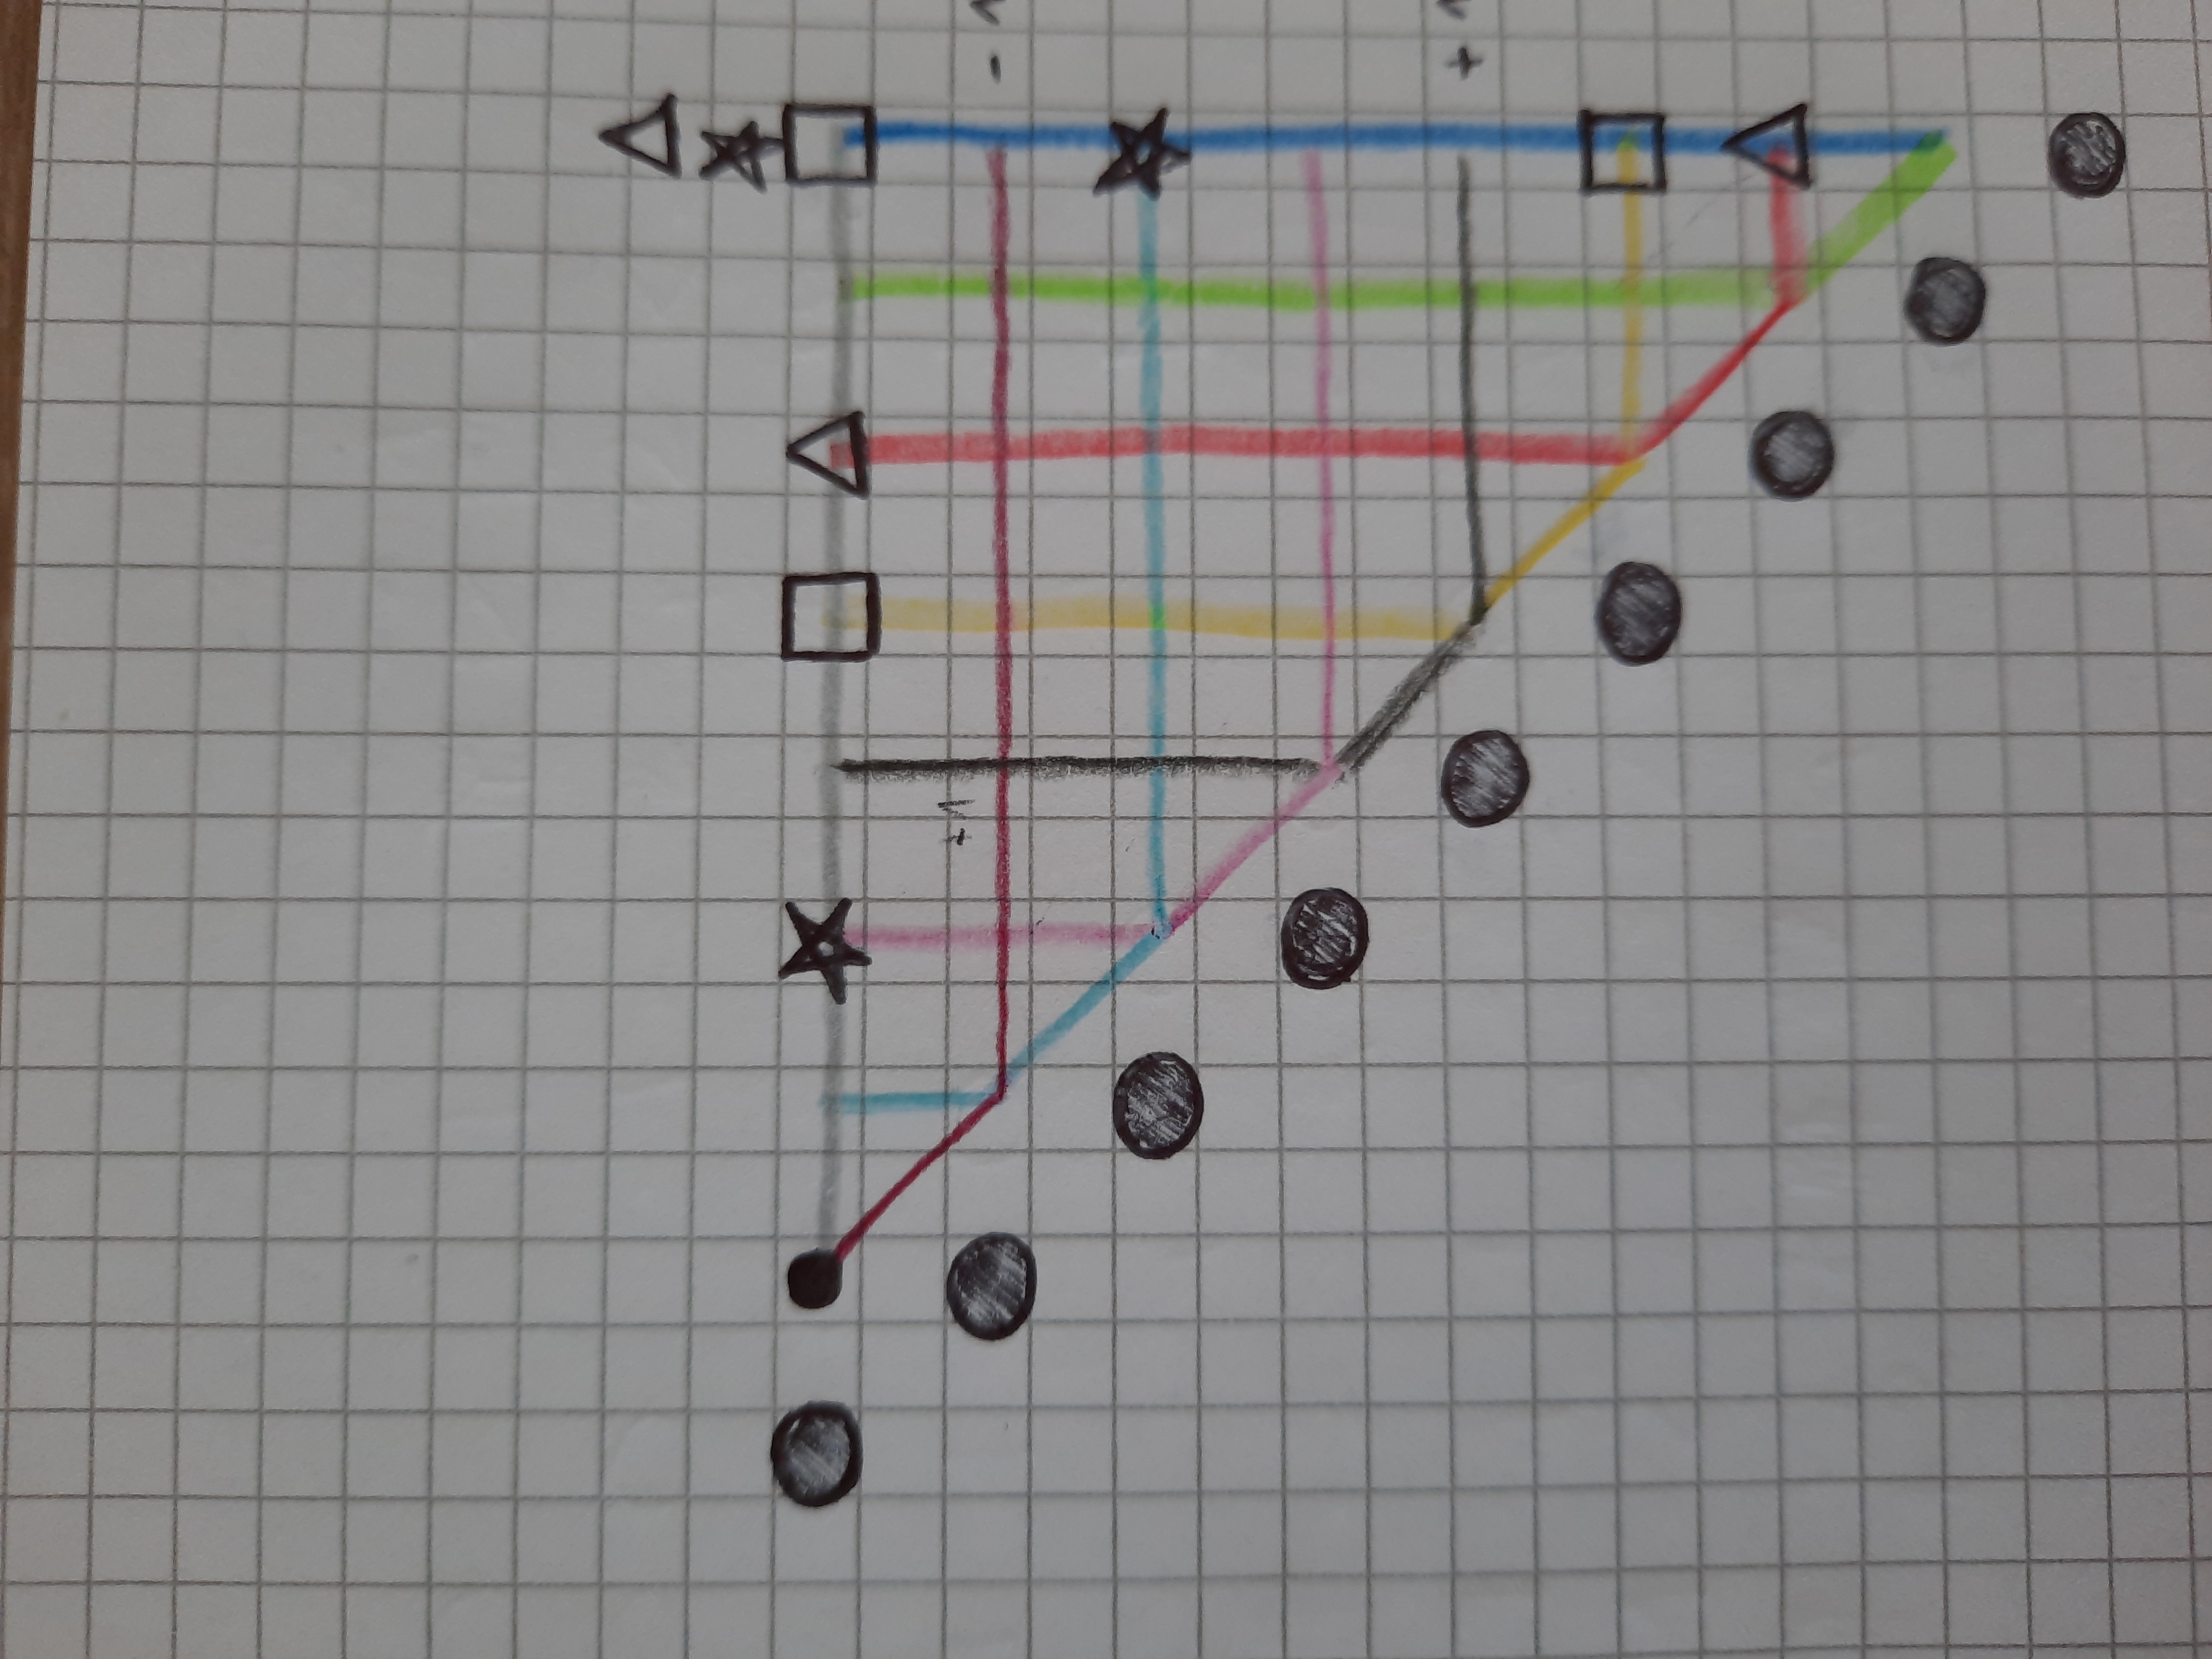 +1
- 1
+ 1